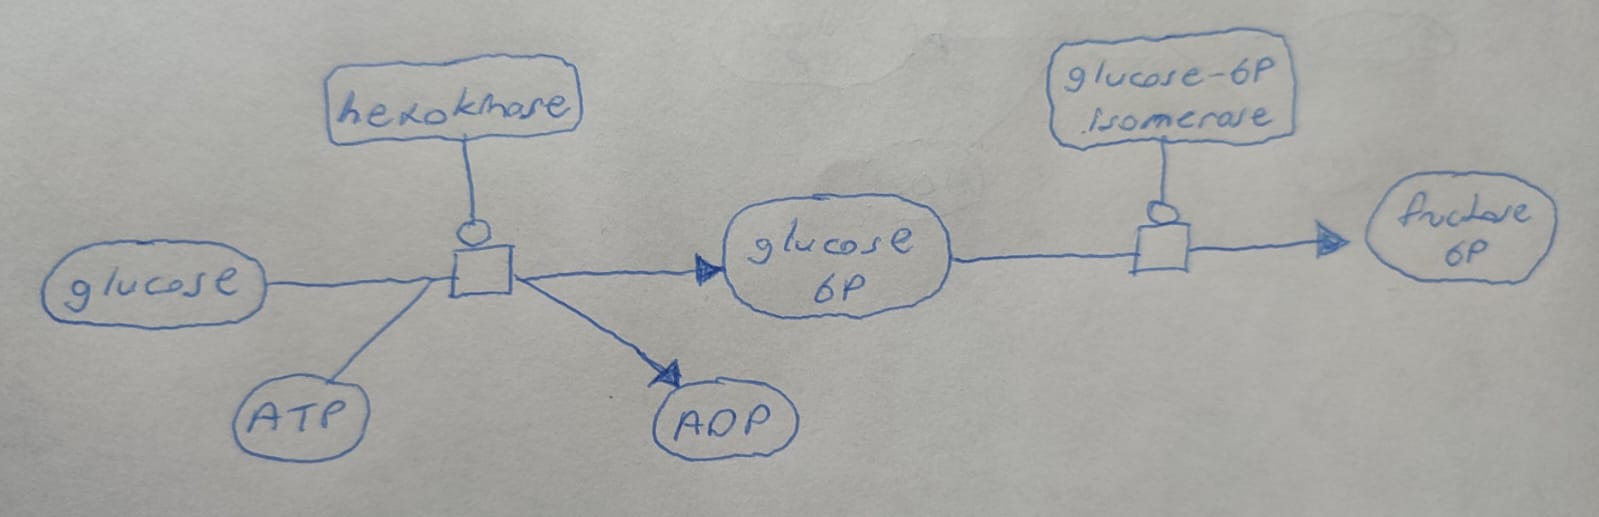 hexokinase
glucose-6P
isomerase
glucose
ATP
glucose
6P
ADP
fructose
6P